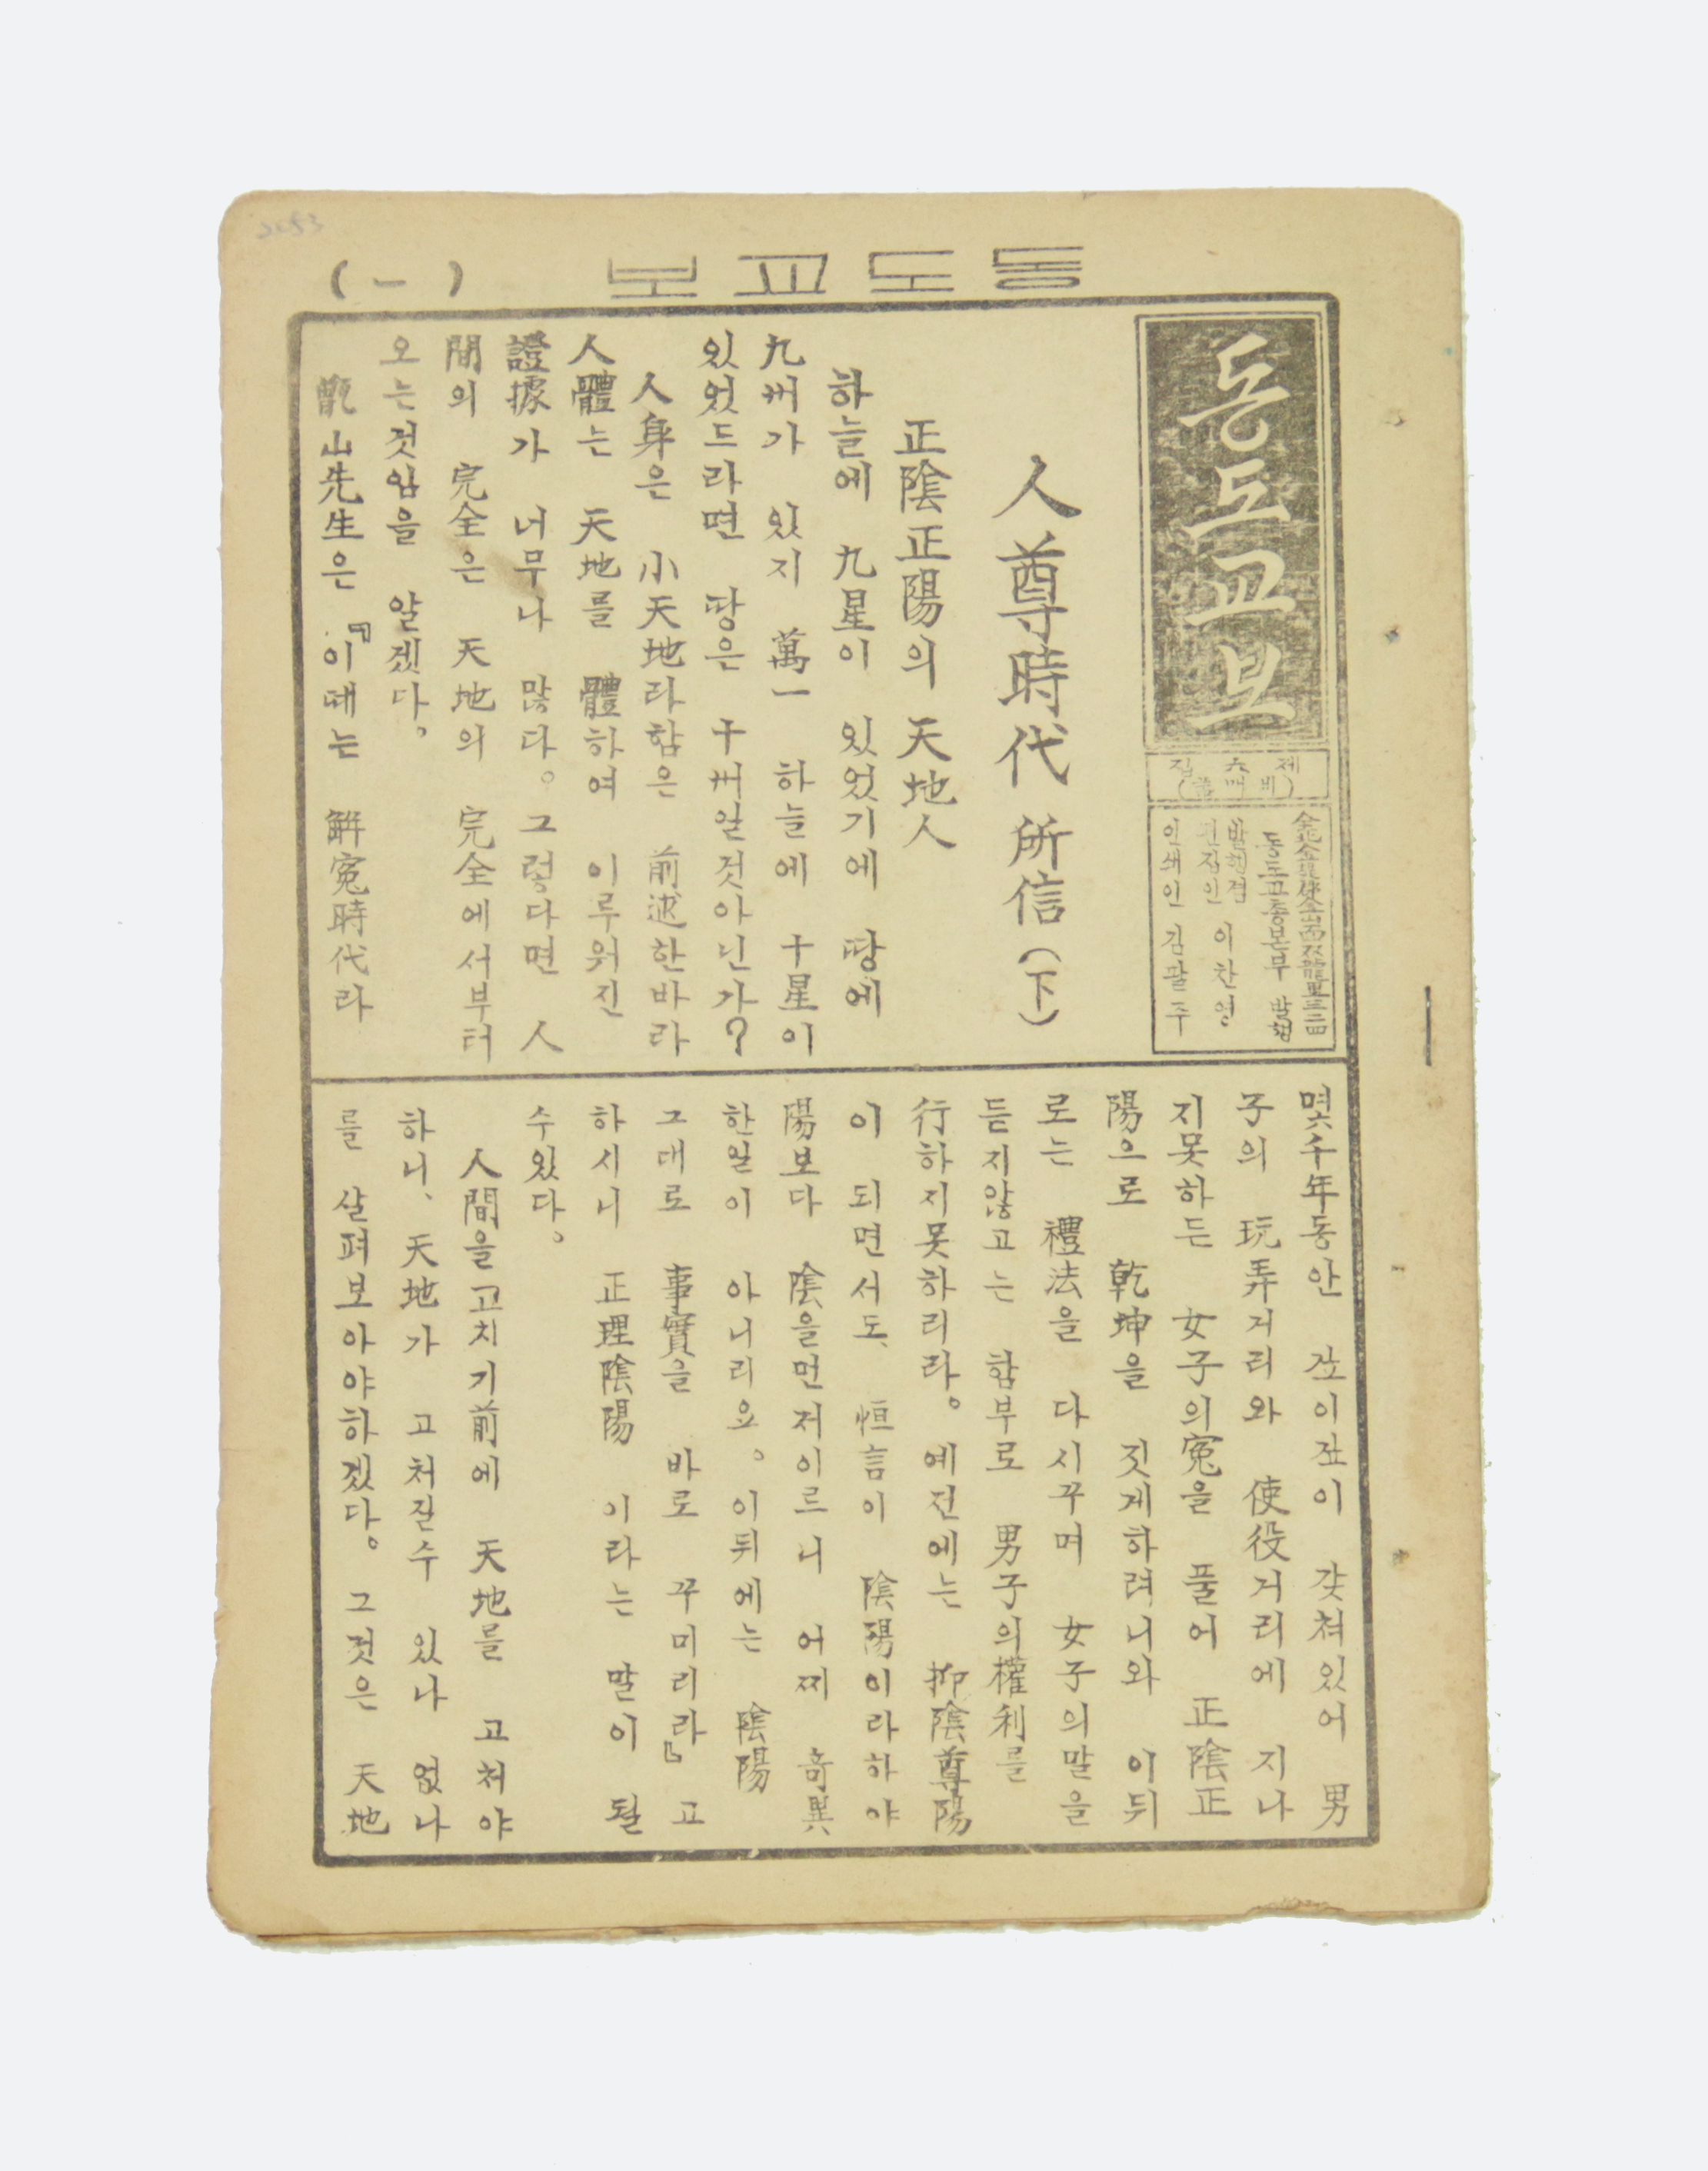 동도교보
(一)
동도교보
제六집
(비매품)
동도교총본부 발행
발행겸
편집인 이찬영
인쇄인 김팔주
人尊時代 所信(下)
正陰正陽의 天地人
하늘에 九星이 있었기에 땅에
九州가 있지 萬一 하늘에 十星이
있었드라면 땅은 十州일것아닌가?
人身은 小天地라함은 前述한바라
人體는 天地를 體하여 이루워진
證據가 너무나 많다。그렇다면 人
間의 完全은 天地의 完全에서부터
오는것임을 알겠다。
甑山先生은 『이때는 解寃時代라
몇千年동안 깊이깊이 갖쳐있어 男
子의 玩弄거리와 使役거리에 지나
지못하든 女子의寃을 풀어 正陰正
陽으로 乾坤을 짓게하려니와 이뒤
로는 禮法을 다시꾸며 女子의말을
듣지않고는 함부로 男子의權利를
行하지못하리라。예전에는 抑陰尊陽
이 되면서도、恒言이 陰陽이라하야
陽보다 陰을먼저이르니 어찌 奇異
한일이 아니리요。이뒤에는 陰陽
그대로 事實을 바로 꾸미리라』고
하시니 正理陰陽 이라는 말이 될
수있다。
人間을고치기前에 天地를 고쳐야
하니、天地가 고처질수 있나 없나
를 살펴보아야하겠다。그것은 天地